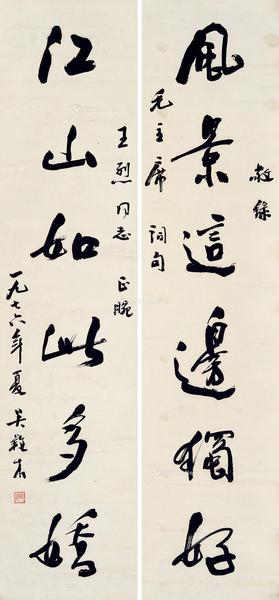 風景這邊獨好
敬錄
毛主席詞句
江山如此多嬌
王烈同志正腕
一九七六年夏吳